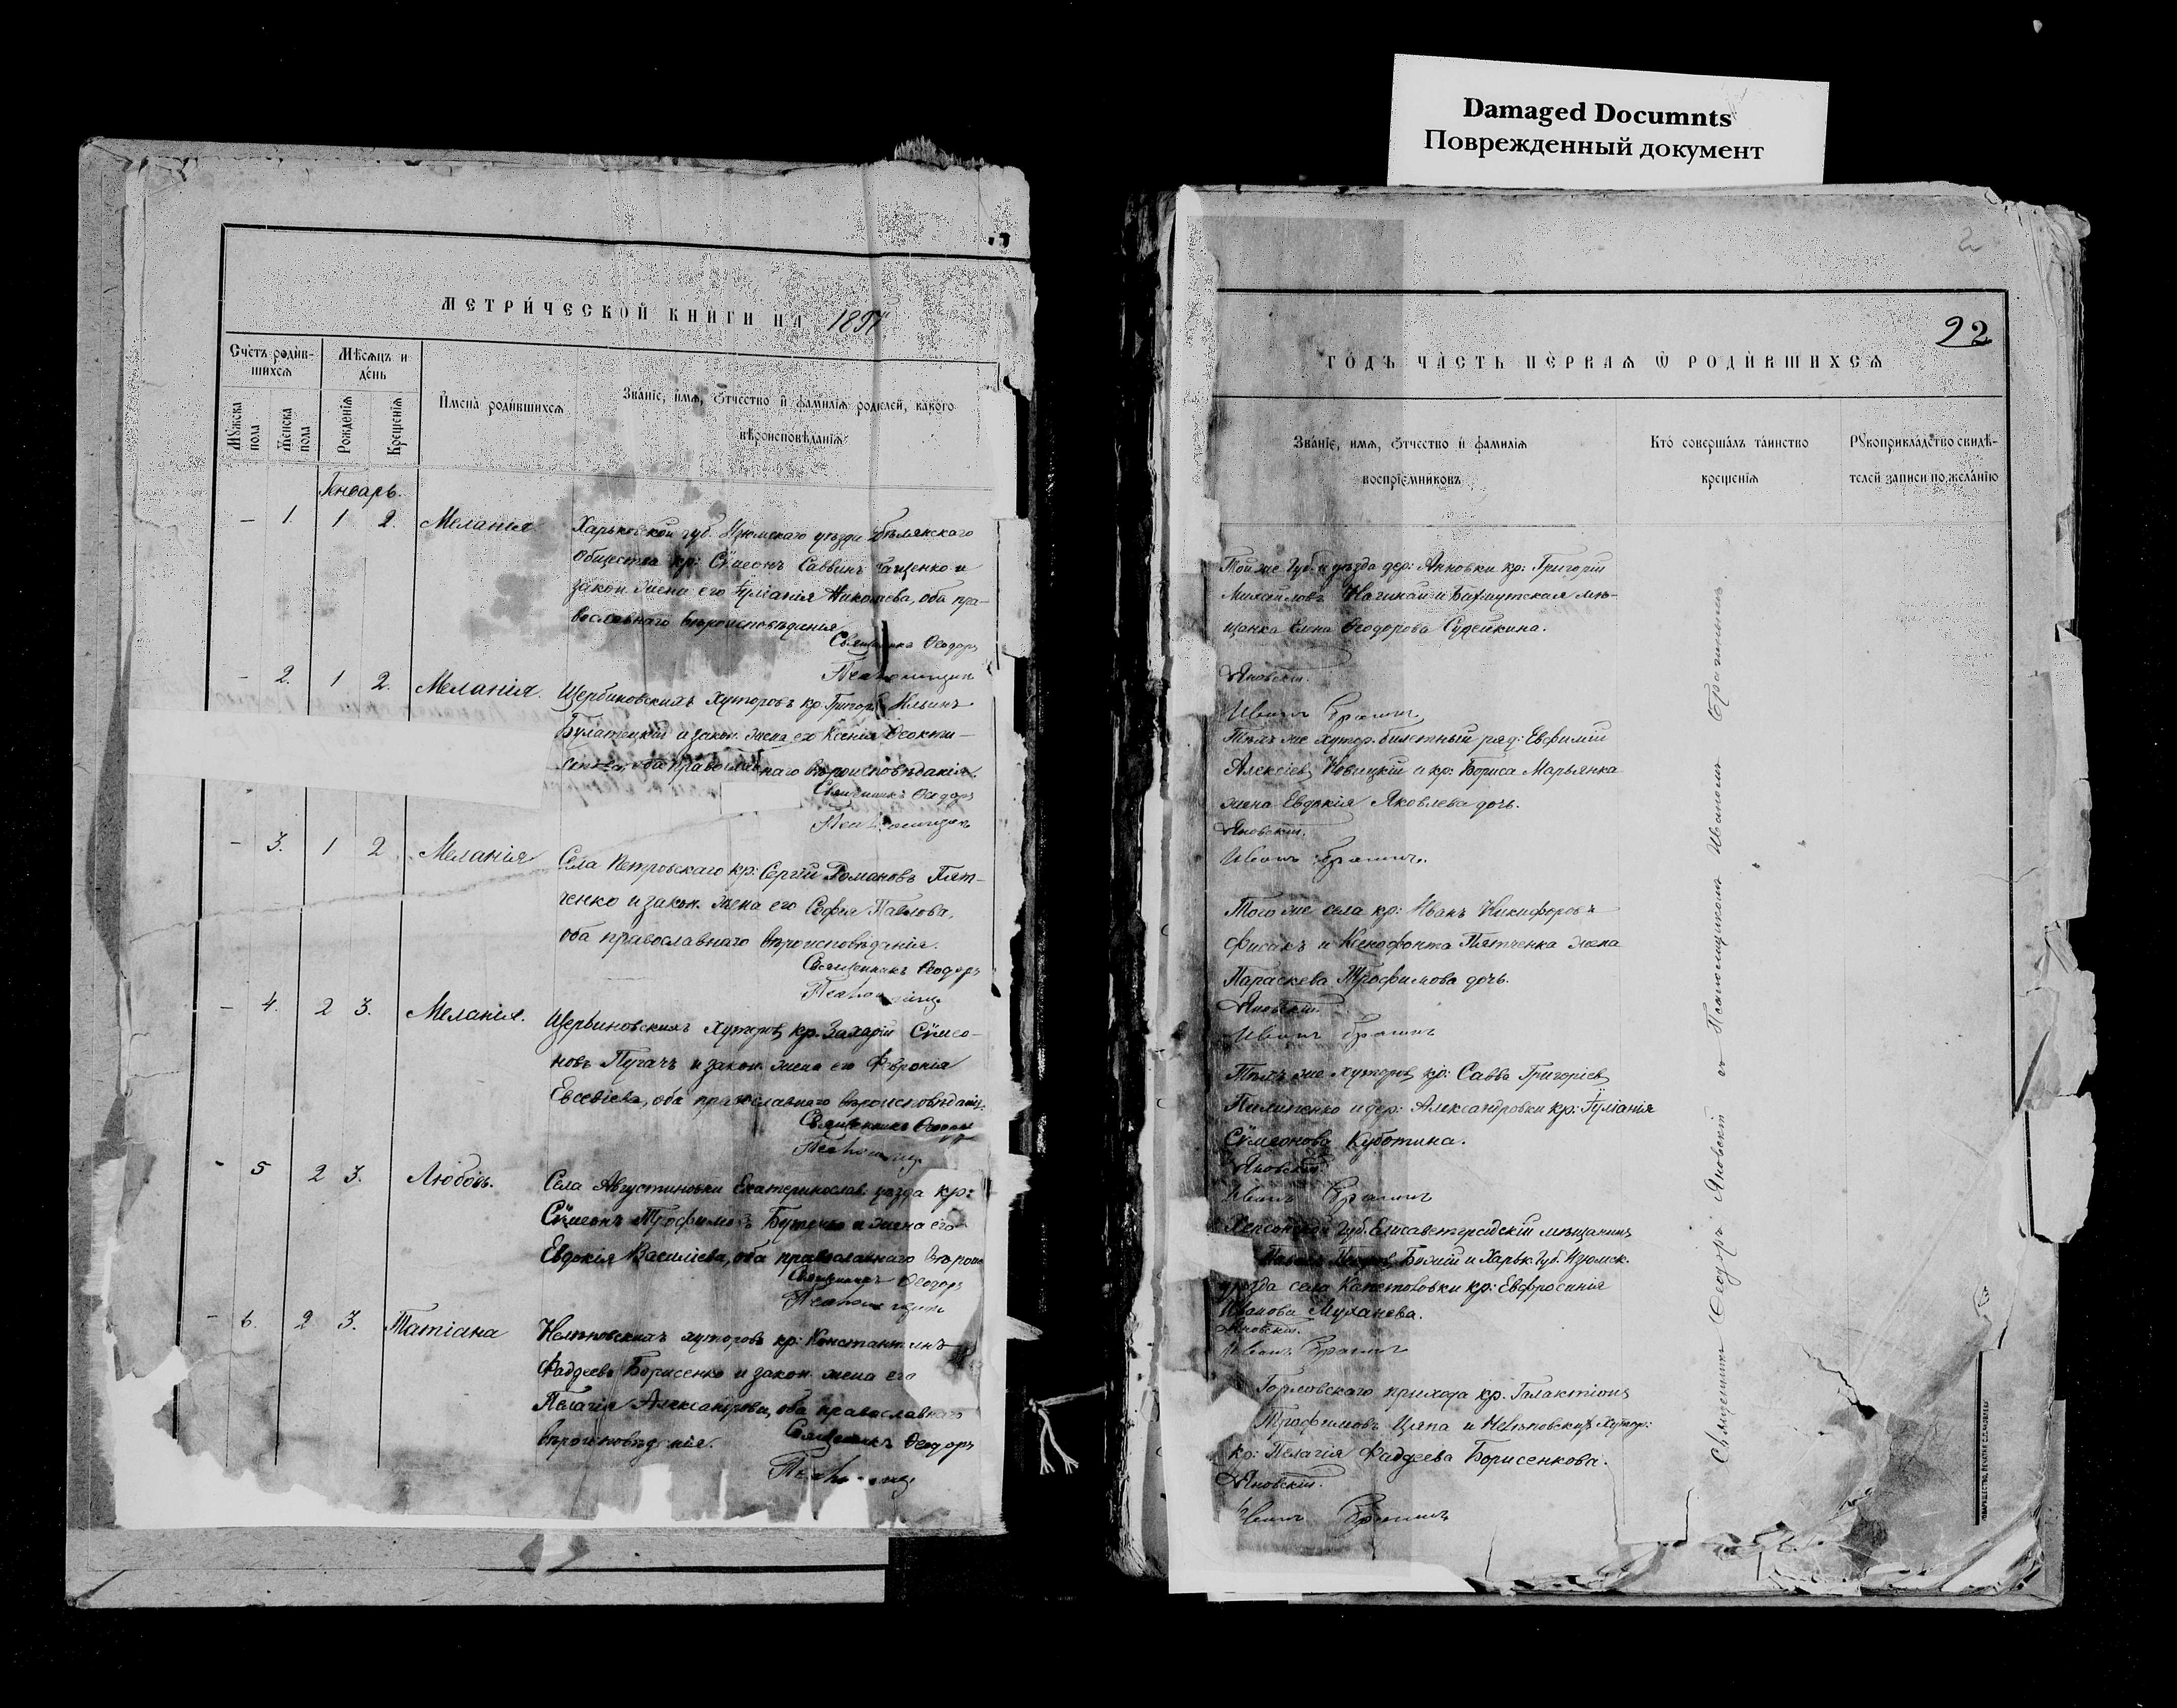 Damaged Documnts
Поврежденный документ
МЕТРИ́ЧЕСКОЙ КНИ́ГИ НА 1897
Сче́тъ роди́вшихсѧ
Мѣ́сѧцъ и де́нь
Имена̀ роди́вшихсѧ
Зва́нїе, и́мѧ, о́тчество и҆ фами́лїѧ роди́телей, како́го
вѣроисповѣ́данїѧ
Мꙋ́жеска пола
Же́нска пола
Рожде́нїѧ
Креще́нїѧ
Январь.
- 1. 1 2. Меланія
Харьковской губ. Изюмскаго уѣзда
общества кр: Сѵмеонъ Саввинъ
закон. жена его Іуліанія Николаева, оба пра-
вославнаго вѣроисповѣданія
Священникъ Ѳеодоръ
- 2. 1 2. Меланія.
Щербиновскихъ хуторовъ кр. Григорій Ильинъ
Булатецкій и закон. жена его Ксенія Ѳеокти-
стова, оба православнаго вѣроисповѣданія.
Священникъ Ѳеодоръ
- 3. 1 2. Меланія
Села Петровскаго кр: Сергій Романовъ Пят-
ченко и закон. жена его Софія Павлова,
оба православнаго вѣроисповѣданія.
Священникъ Ѳеодоръ
- 4. 2 3. Меланія.
Щербиновскихъ хуторовъ кр. Захарій Сѵмео-
новъ Пугачъ и закон. жена его Февронія
Евсевіева, оба православнаго вѣроисповѣданія.
Священникъ Ѳеодоръ
- 5 2 3. Любовь.
Села Августиновки Екатеринослав. уѣзда кр:
Сѵмеонъ Трофимовъ и жена его
Евдокія Василіева, оба православнаго вѣроис
Священникъ Ѳеодоръ
- 6. 2 3. Татіана
Нелѣповскихъ хуторовъ кр: Константинъ
Фаддеевъ Борисенко и закон. жена его
Пелагія Александрова, оба православнаго
вѣроисповѣданія.
Священникъ Ѳеодоръ
2
92
ГО́ДЪ ЧА́СТЬ ПЕ́РВАѦ Ѡ҆ РОДИ́ВШИХСѦ
Зва́нїе, и́мѧ, о́тчество и҆ фами́лїѧ
воспрїе́мниковъ
Кто̀ соверша́лъ та́инство
креще́нїѧ
Рꙋкоприкла́дство свидѣ́-
телей записи по жела́нїю
Той же губ. и уѣзда дер: Анновки кр: Григорій
Михаиловъ и Бахмутская мѣ-
щанка Елена Ѳеодорова Судейкина.
Яновскій.
Иванъ
Тѣхъ же хутор. билетный ряд: Евфимій
Алексіевъ Новицкій и кр: Бориса Марьянка
жена Евдокія Яковлева дочь.
Яновскій.
Иванъ
Того же села кр: Иванъ Никифоровъ
Фисакъ и Ксенофонта Пятченка жена
Параскева Трофимова дочь.
Яновскій.
Иванъ
Тѣхъ же хуторовъ кр: Савва Григоріевъ
Пилипенко и дер: Александровки кр: Іуліанія
Сѵмеонова Куботина.
Яновскій.
Иванъ
Херсонской губ. Елисаветградскій мѣщанинъ
и Харьк. губ. Изюмск.
уѣзда села кр: Евфросинія
Иванова Муханева.
Яновскій.
Иванъ
Горловскаго прихода кр. Галактіонъ
Трофимовъ Цяпа и Нелѣповскихъ хутор:
кр: Пелагія Фаддеева Борисенкова.
Яновскій.
Иванъ
Священникъ Ѳеодоръ Яновскій съ Псаломщикомъ Иваномъ